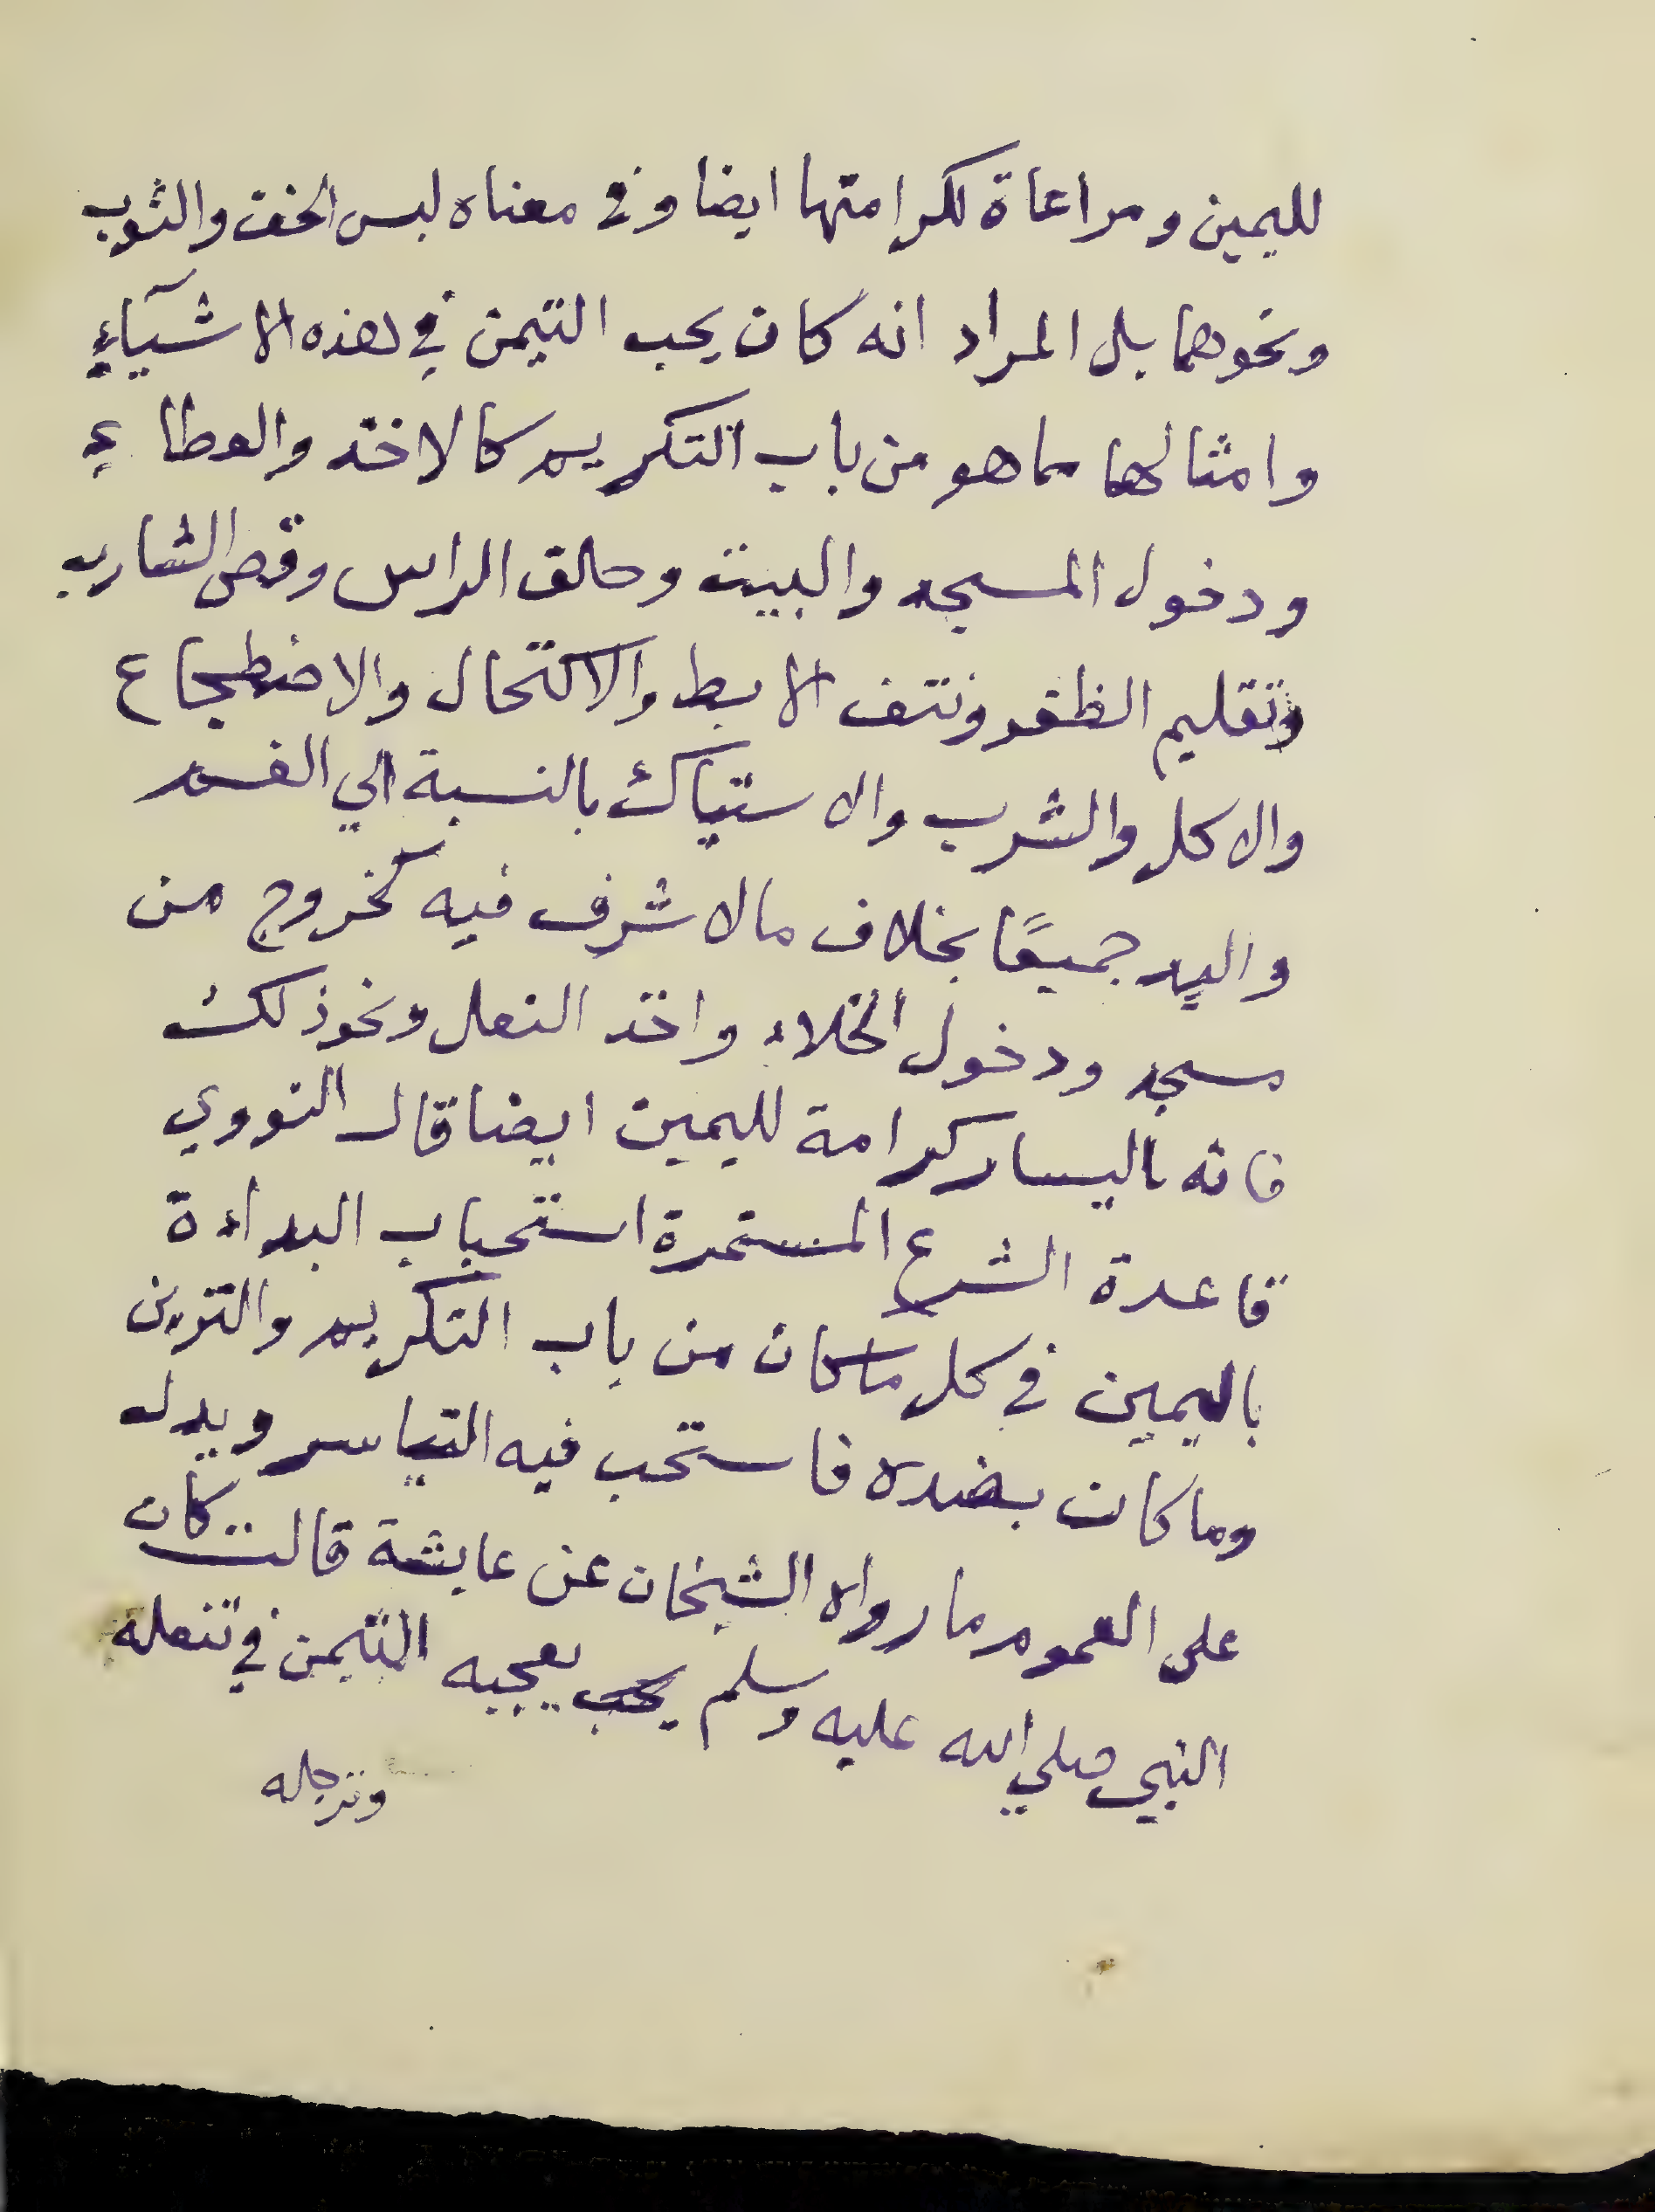 لليمين ومراعاة لكرامتها ايضا وفي معناه لبس الخف والثوب
ونحوهما بل المراد انه كان يحب التيمن في هذه الاشيآءِ
وامثالها مما هو من باب التكريم كالاخذ والعطاءِ
ودخول المسجد والبيت وحلق الراس وقص الشارب
وتقليم الظفر ونتف الابط والاكتحال والاضطجاع
والاكل والشرب والاستياك بالنسبة الي الفم
واليد جميعًا بخلاف مالا شرف فيه كخروج من
مسجد ودخول الخلاء واخذ النعل ونحو ذلك
فانه باليسار كرامة لليمين ايضا قال النووي
قاعدة الشرع المستمرة استحباب البداءة
باليمين في كل ماكان من باب التكريم والتزين
وما كان بضده فاستحب فيه التياسر ويدل
على العموم ما رواه الشيخان عن عايشة قالت كان
النبي صلي الله عليه وسلم يحب يعجبه التيمن في تنعله
وترجله